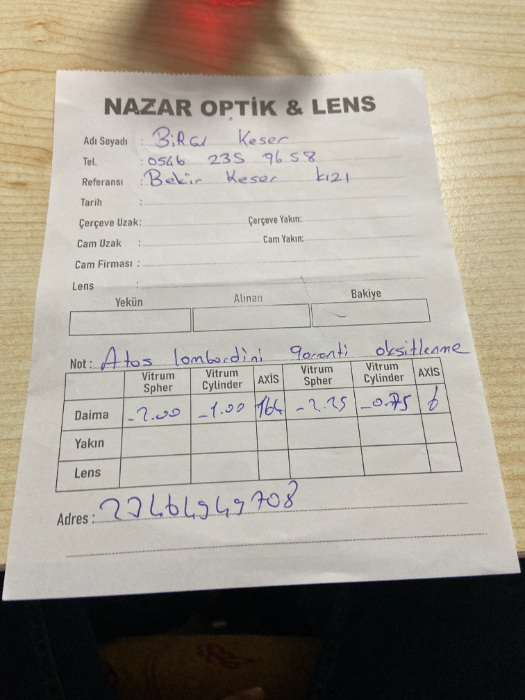 NAZAR OPTİK & LENS
Adı Soyadı : Keser
Tel. : 0546 235 9658
Referansı : Bekir Keser kızı
Tarih :
Çerçeve Uzak: Çerçeve Yakın:
Cam Uzak : Cam Yakın:
Cam Firması :
Lens :
Yekün Alınan Bakiye
Not : Atos lombardini garanti oksitlenme
Vitrum Spher Vitrum Cylinder AXİS Vitrum Spher Vitrum Cylinder AXİS
Daima -2.00 -1.00 164 -2.25 -0.75 6
Yakın
Lens
Adres :